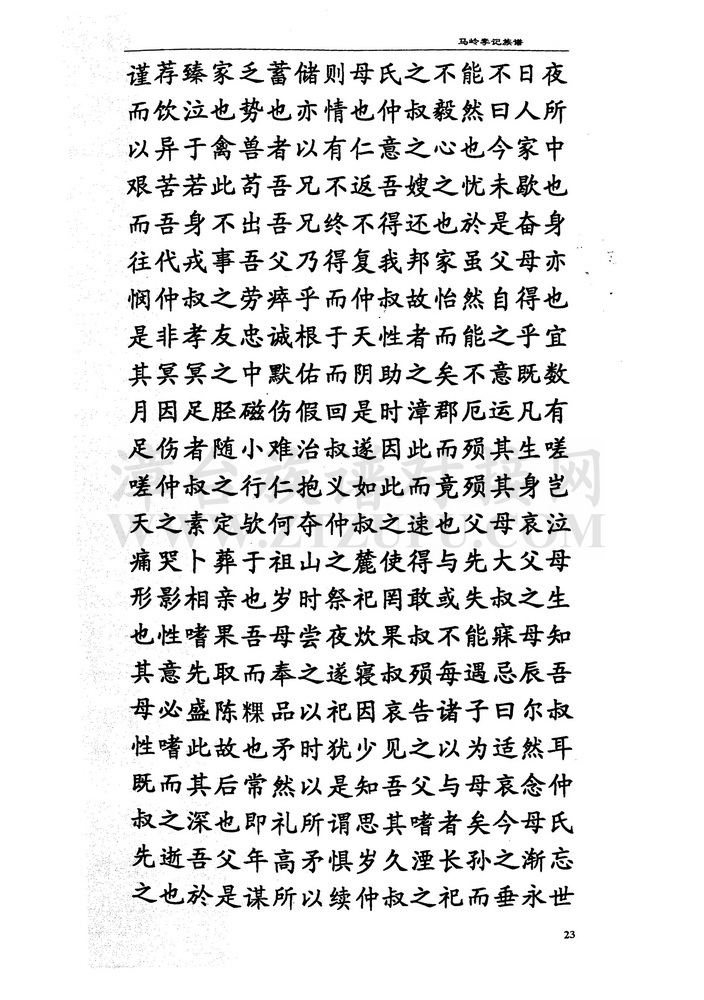 马岭李记族谱
谨荐臻家乏蓄储则母氏之不能不日夜
而饮泣也势也亦情也仲叔毅然曰人所
以异于禽兽者以有仁意之心也今家中
艰苦若此苟吾兄不返吾嫂之忧未歇也
而吾身不出吾兄终不得还也於是奋身
往代戎事吾父乃得复我邦家虽父母亦
悯仲叔之劳瘁乎而仲叔故怡然自得也
是非孝友忠诚根于天性者而能之乎宜
其冥冥之中默佑而阴助之矣不意既数
月因足胫磁伤假回是时漳郡厄运凡有
足伤者随小难治叔遂因此而殒其生嗟
嗟仲叔之行仁抱义如此而竟殒其身岂
天之素定欤何夺仲叔之速也父母哀泣
痛哭卜葬于祖山之麓使得与先大父母
形影相亲也岁时祭祀罔敢或失叔之生
也性嗜果吾母尝夜炊果叔不能寐母知
其意先取而奉之遂寝叔殒每遇忌辰吾
母必盛陈粿品以祀因哀告诸子曰尔叔
性嗜此故也矛时犹少见之以为适然耳
既而其后常然以是知吾父与母哀念仲
叔之深也即礼所谓思其嗜者矣今母氏
先逝吾父年高矛惧岁久湮长孙之渐忘
之也於是谋所以续仲叔之祀而垂永世
23
漳台族谱对接网
WWW.ZTZUPU.COM